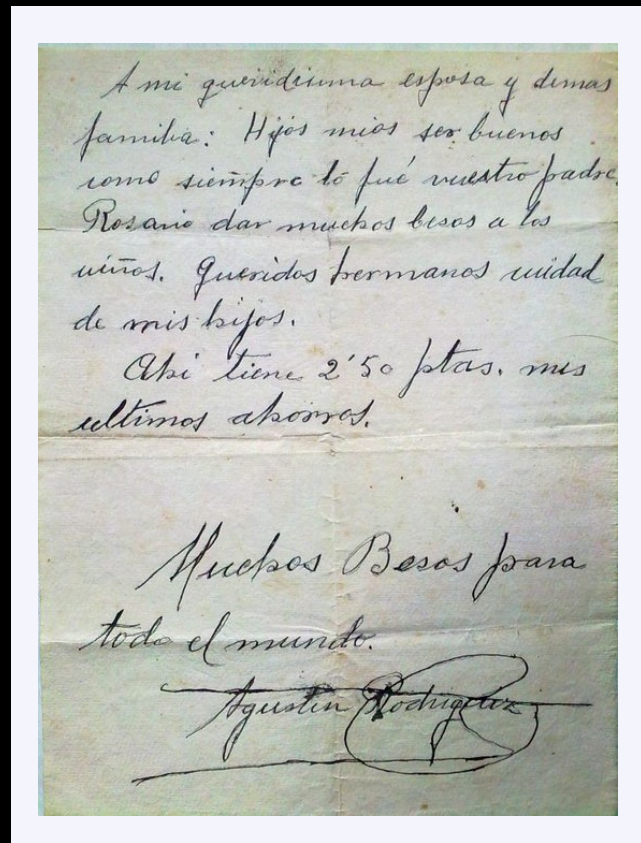 A mi queridisima esposa y demas
familia: Hijos mios ser buenos
como siempre lo fué vuestro padre.
Rosario dar muchos besos a los
niños. Queridos hermanos cuidad
de mis hijos.
Ahi tiene 2'50 ptas. mis
ultimos ahorros.
Muchos Besos para
todo el mundo.
Agustin Rodriguez